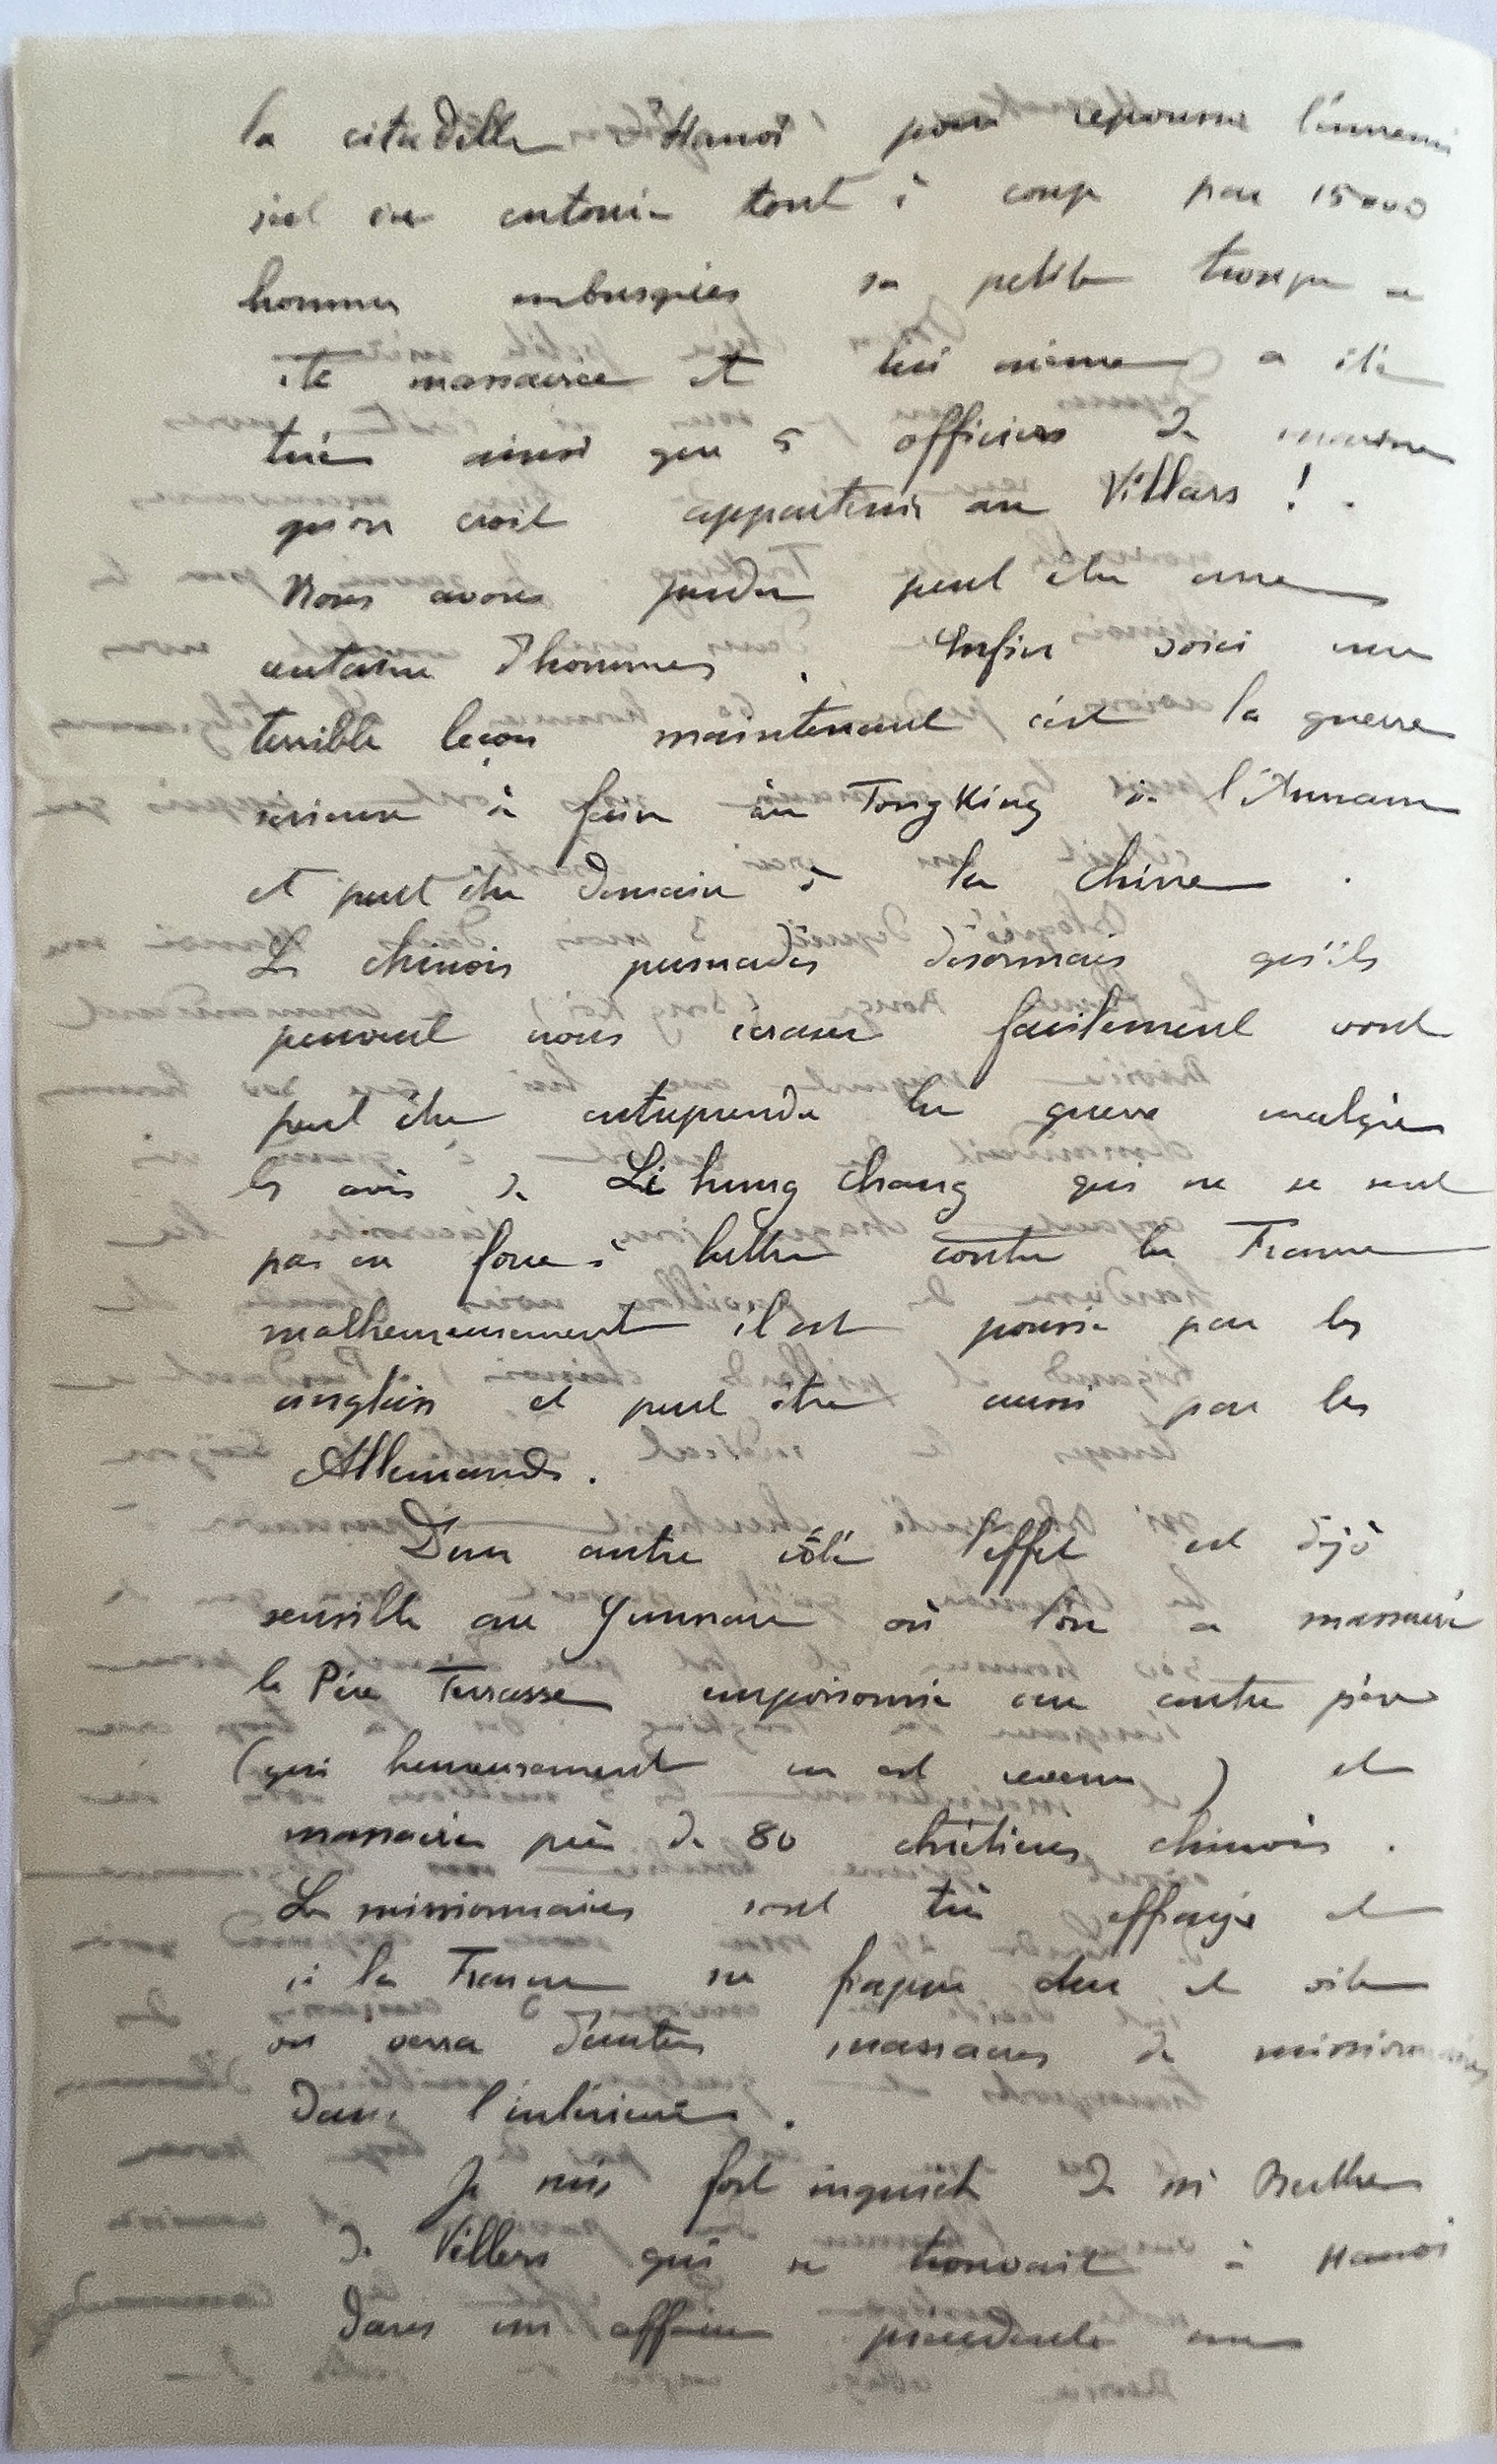 la citadelle d'Hanoi pour repousser l'ennemi
s'est vu entouré tout à coup par 15000
hommes embusqués sa petite troupe a
été massacrée et lui même a été
tué ainsi que 5 officiers de marine
qu'on croit appartenir au Villars !
Nous avons perdu peut être une
centaine d'hommes. Enfin voici une
terrible leçon maintenant c'est la guerre
serieuse à faire au TongKing à l'Annam
et peut être demain à la Chine.
Les chinois persuadés désormais qu'ils
peuvent nous écraser facilement vont
peut être entreprendre la guerre malgré
les avis de Li hung chang qui ne se sent
pas en force à lutter contre la France
malheureusement il est poussé par les
anglais et peut être aussi par les
Allemands.
D'un autre côté l'effet est déjà
sensible au Yunnan où l'on a massacré
le Père Terrasse empoisonné un autre père
(qui heureusement en est revenu) et
massacré près de 80 chrétiens chinois.
Les missionnaires sont très effrayés et
si la France ne frappe dur et vite
on verra d'autres massacres de missionnaires
dans l'intérieur.
Je suis fort inquiet de Mr
de Villers qui se trouvait à Hanoi
Dans une affaire précédente une